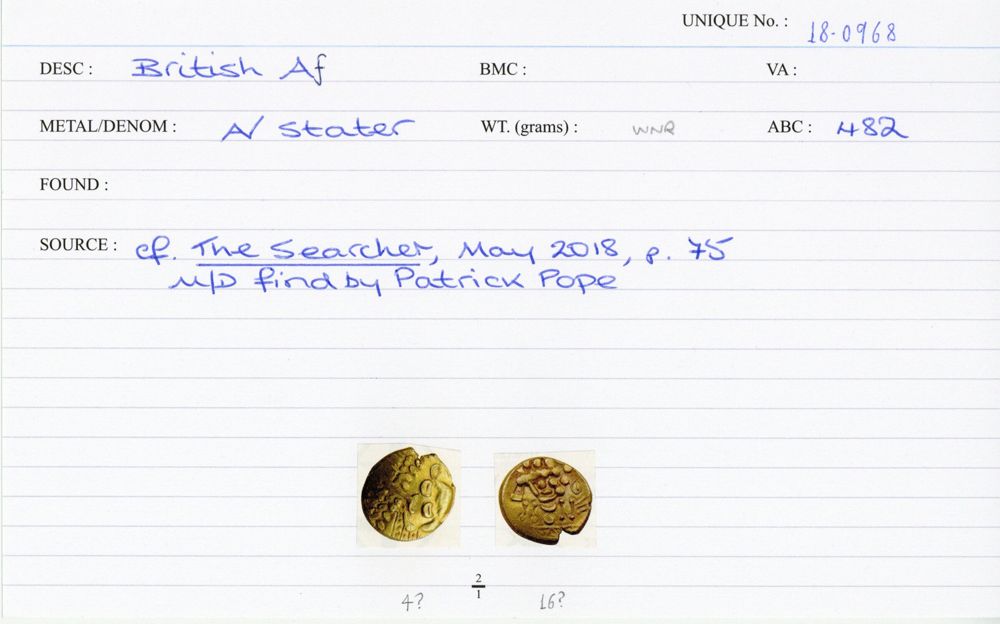 UNIQUE No. : 18-0968
DESC : British Af BMC : VA :
METAL/DENOM : A/ Stater WT. (grams) : WNR ABC : 482
FOUND :
SOURCE : cf. The Searcher, May 2018, p. 75
M/D find by Patrick Pope
2
1
4? 16?